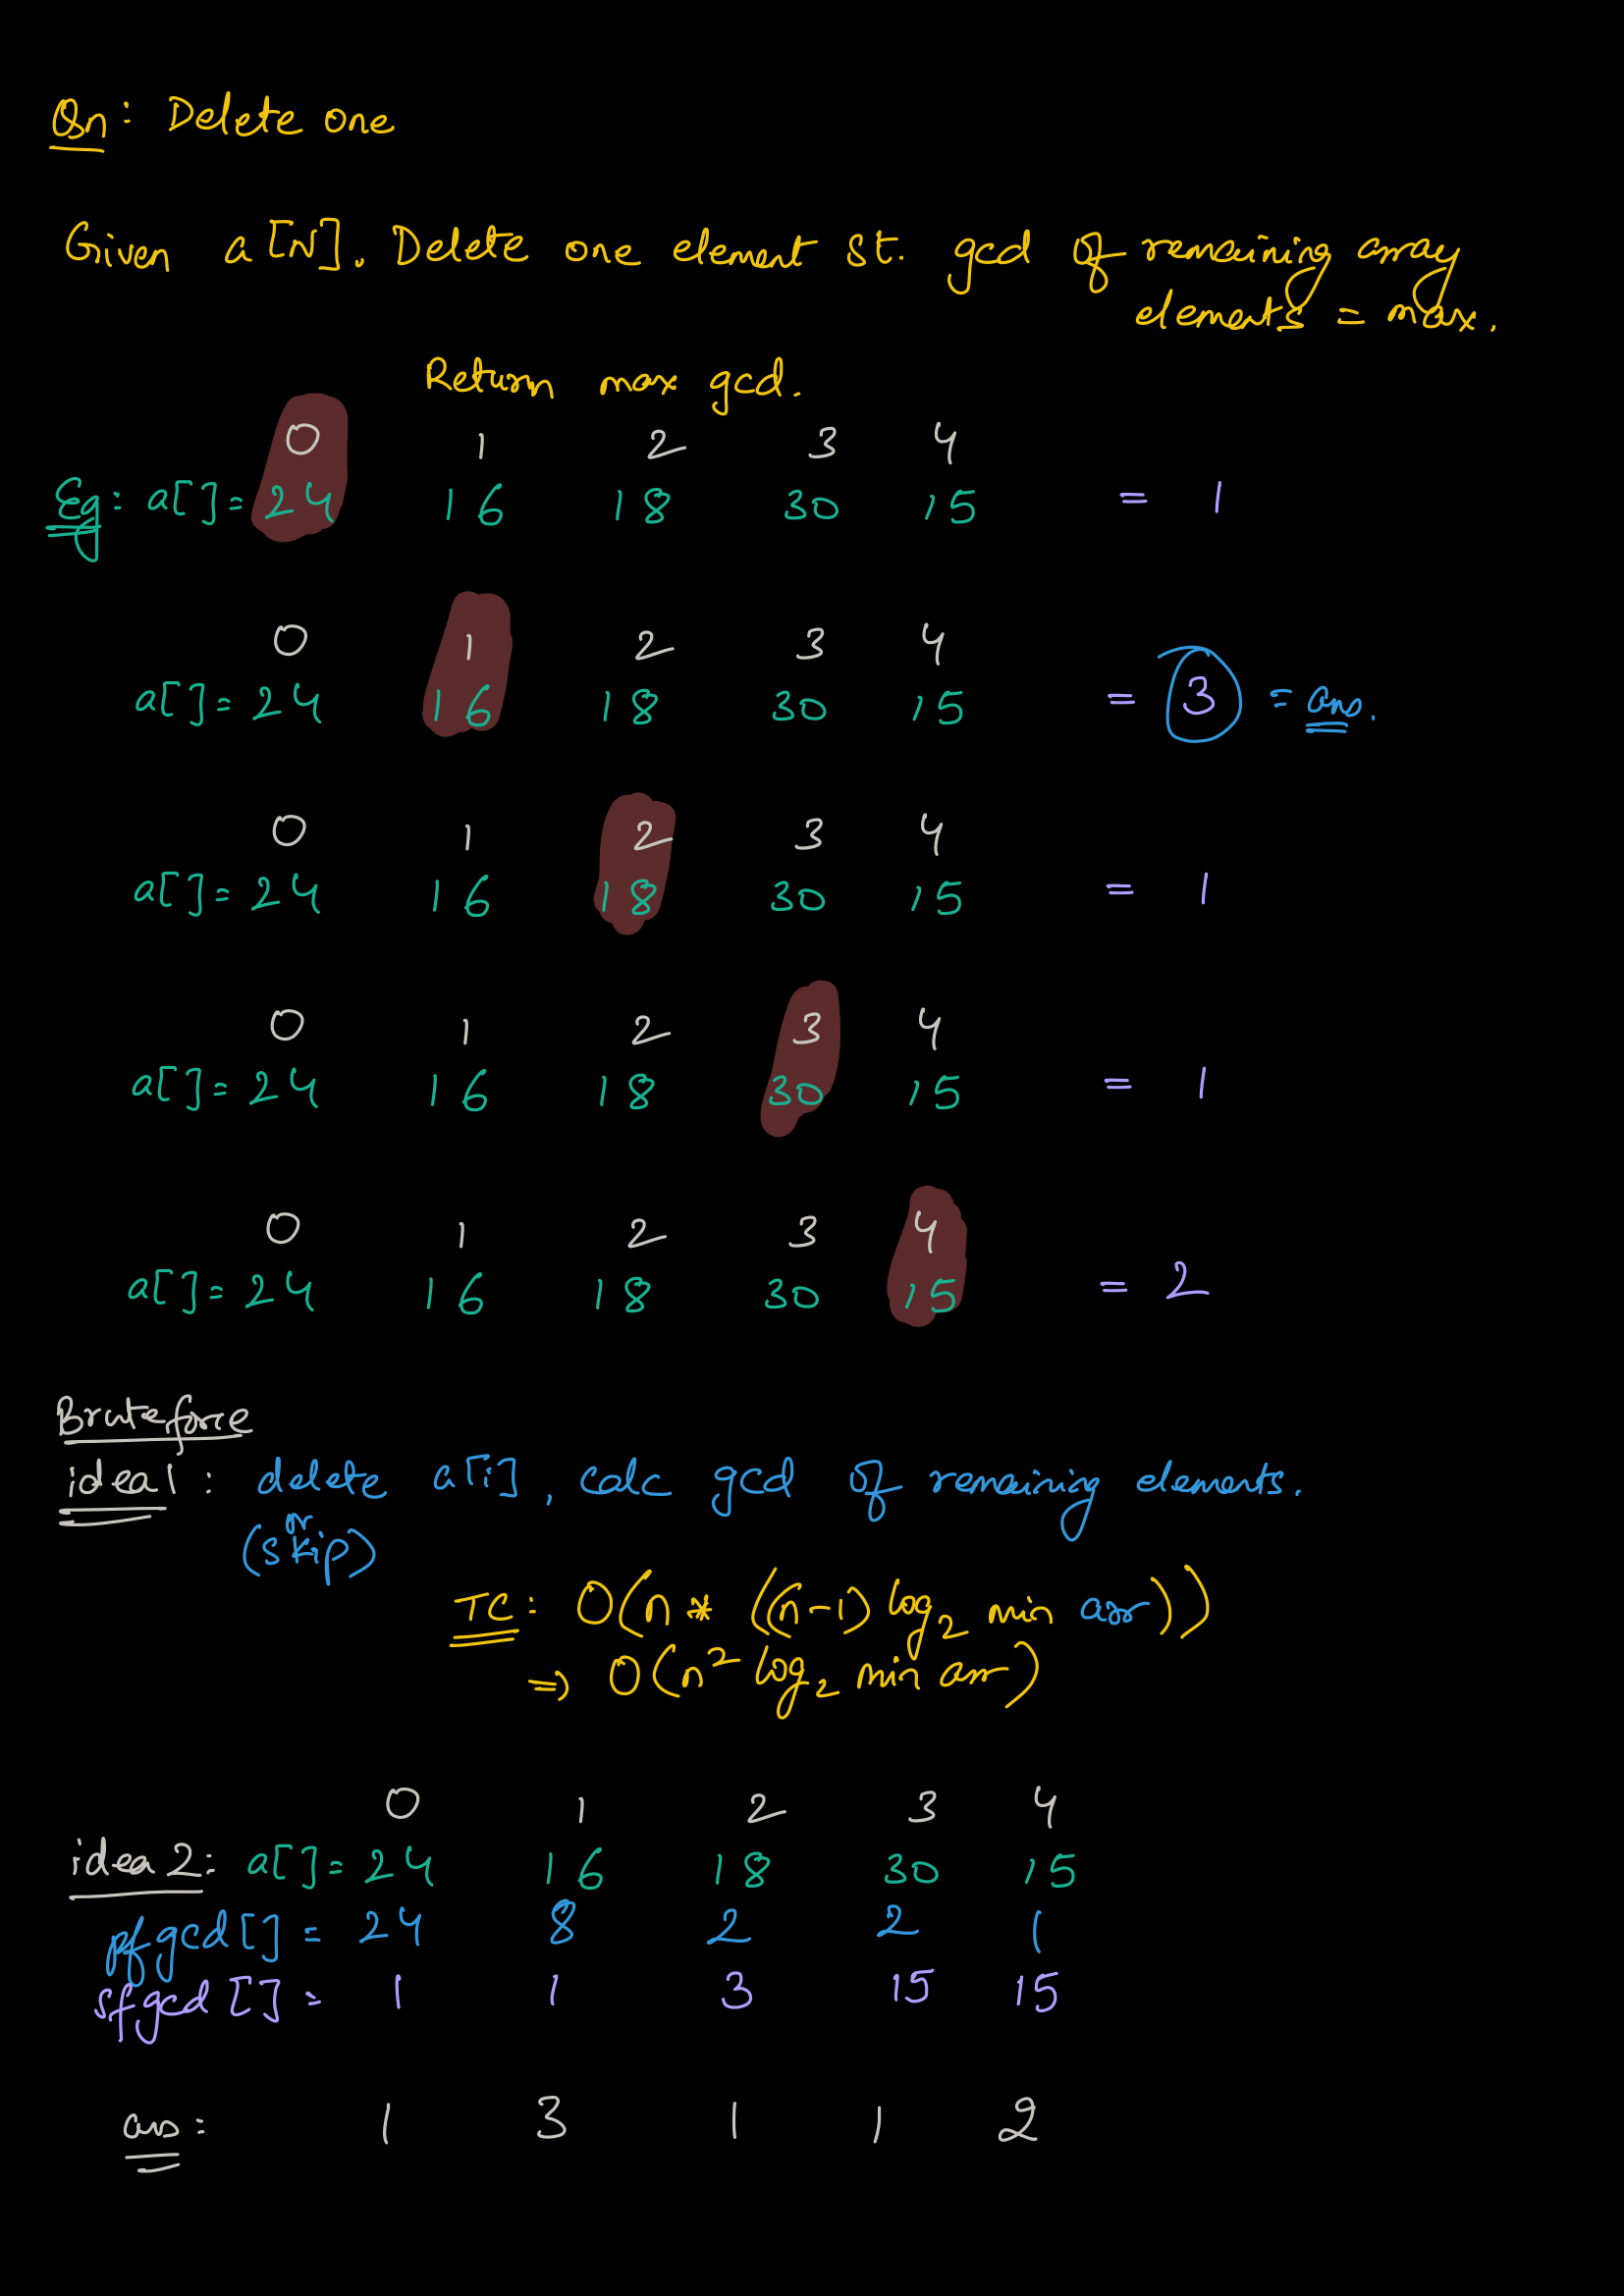 Qn: Delete one
Given a[N]. Delete one element st. gcd of remaining array
elements = max.
Return max gcd.
0 1 2 3 4
Eg: a[]= 24 16 18 30 15 = 1
0 1 2 3 4
a[]= 24 16 18 30 15 = 3 = ans.
0 1 2 3 4
a[]= 24 16 18 30 15 = 1
0 1 2 3 4
a[]= 24 16 18 30 15 = 1
0 1 2 3 4
a[]= 24 16 18 30 15 = 2
Bruteforce
idea1: delete a[i], calc gcd of remaining elements.
or
(skip)
TC: O(n * ((n-1) log₂ min arr))
=> O(n² log₂ min arr)
0 1 2 3 4
idea 2: a[]= 24 16 18 30 15
pfgcd[] = 24 8 2 2 1
sfgcd[] = 1 1 3 15 15
ans: 1 3 1 1 2